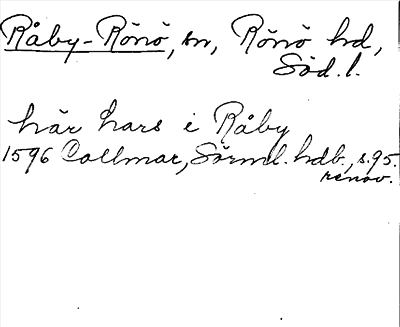 Råby-Rönö, sn, Rönö hd,
Söd.l.
här hars i Råby
1596 Collmar, Sörml. hdb., s. 95.
renov.